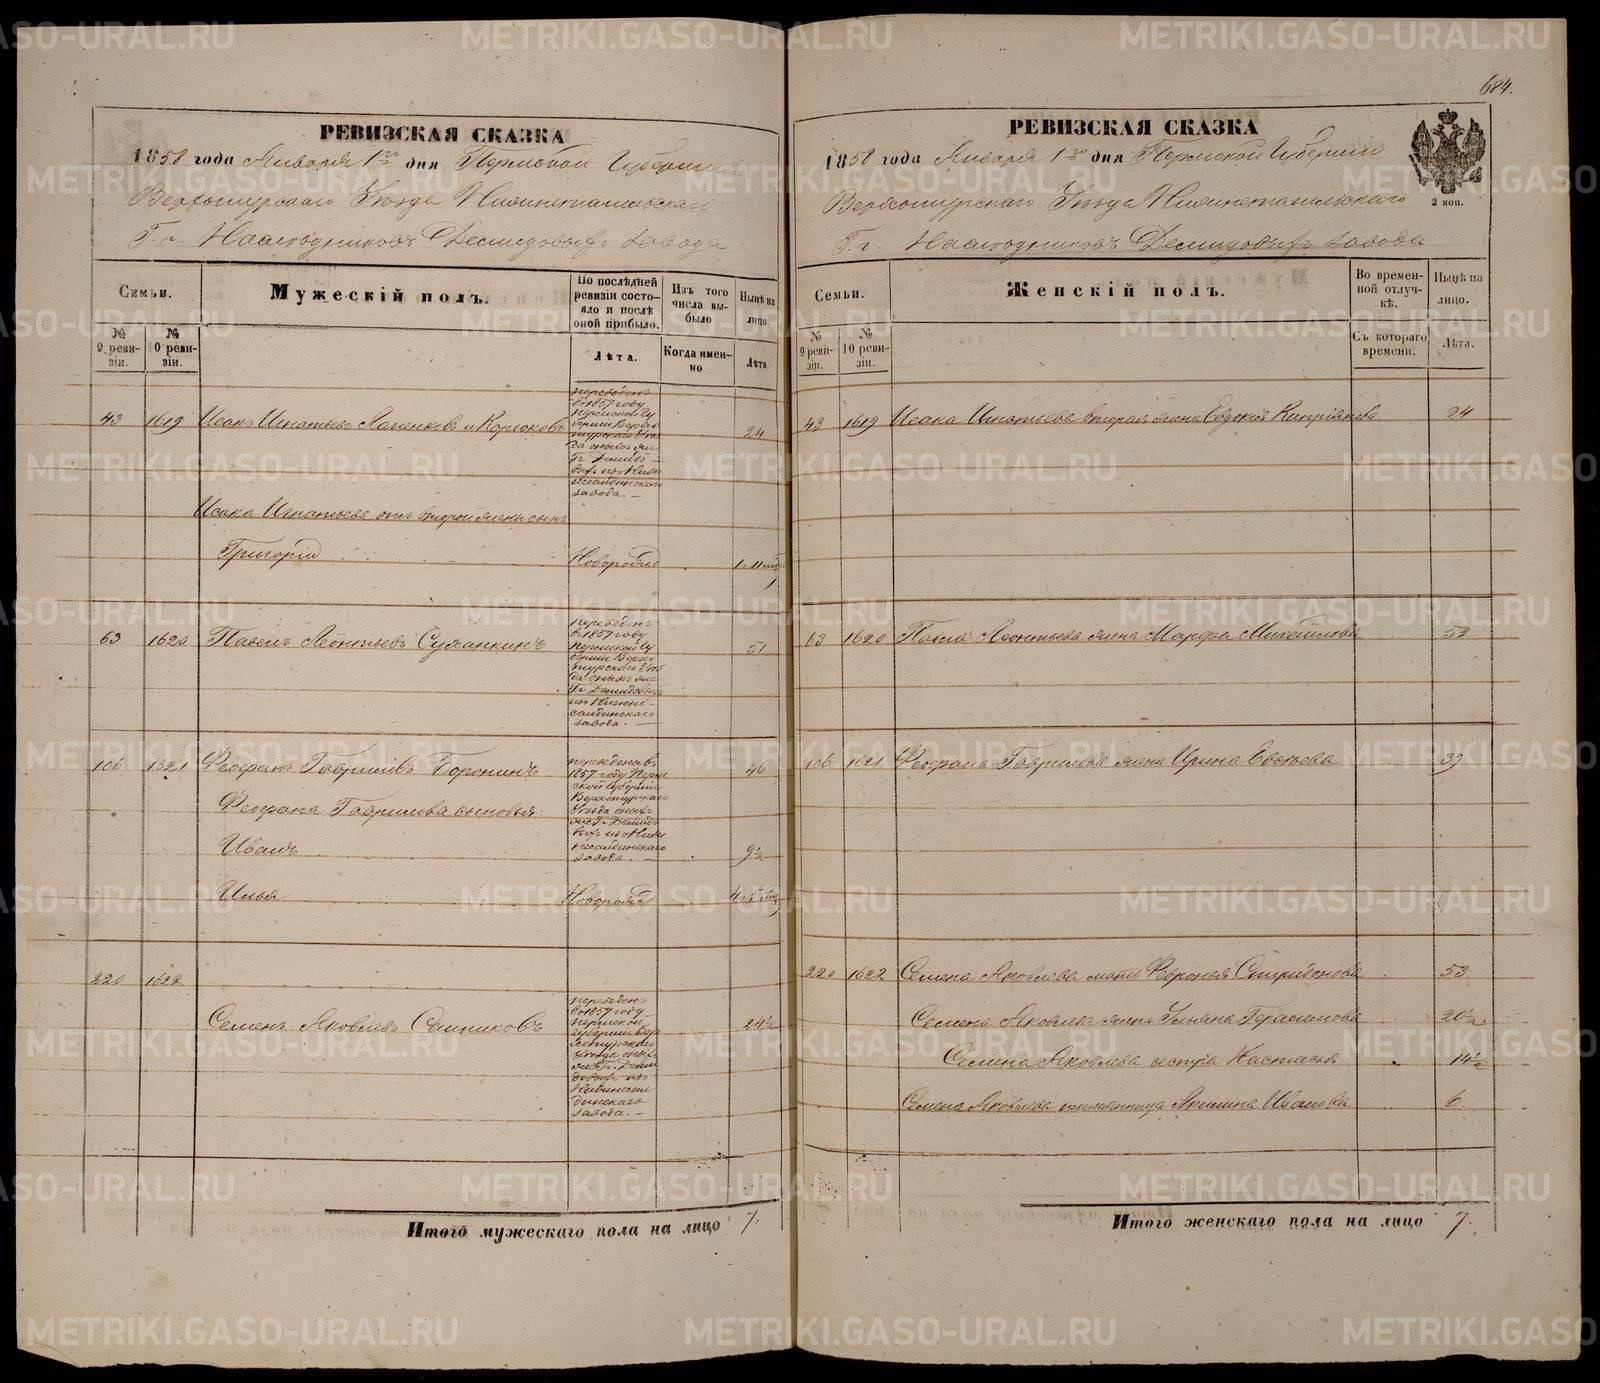 684.
РЕВИЗСКАЯ СКАЗКА
1858 года Января 1го дня Пермской Губернии
Верхотурскаго Уезда Нижнетагильскаго
Г. г. Наследниковъ Демидовыхъ завода
Семьи.
Мужескій полъ.
По послѣдней ревизіи состояло и послѣ оной прибыло.
Изъ того числа выбыло
Нынѣ на лицо.
№ 9 ревизіи.
№ 10 ревизіи.
Лѣта.
Когда именно
Лѣта.
43 1619 Исакъ Игнатьевъ 24
переведенъ
въ 1857 году
Пермской Гу
берніи Верхо
турскаго Уѣз
да оныхъ же
Гг. Демидо
выхъ изъ Ниж
несалдинскаго
завода. —
Исака Игнатьева отъ второй жены сынъ
Григорій Новорожд 1 г. 11 мѣс
63 1620 Павелъ Леонтьевъ 51
переведенъ
въ 1857 году
Пермской Гу
берніи Верхо
турскаго Уѣз
да оныхъ же
Гг. Демидовыхъ
изъ Нижне
салдинскаго
завода. —
106 1621 Феофанъ Гавриловъ Воронинъ 46
переведены въ
1857 году Перм
ской Губерніи
Верхотурскаго
Уѣзда оныхъ
же Гг. Демидо
выхъ изъ Ниж
несалдинскаго
завода. —
Феофана Гаврилова сыновья:
Иванъ 9 1/2
Илья Новорожд 4 г. 5 мѣс
220 1622
Семенъ Яковлевъ Санниковъ 24 1/2
переведенъ
въ 1857 году
Пермской
губерніи Вер
хотурскаго
Уѣзда оныхъ
же Гг. Деми
довыхъ изъ
Нижнесал
динскаго
завода. —
Итого мужескаго пола на лицо 7.
РЕВИЗСКАЯ СКАЗКА
1858 года Января 1го дня Пермской Губерніи
2 коп.
Верхотурскаго Уезда Нижнетагильскаго
Г. г. Наследниковъ Демидовыхъ завода
Семьи.
Женскій полъ.
Во временной отлучкѣ.
Нынѣ на лицо.
№ 9 ревизіи.
№ 10 ревизіи.
Съ котораго времени.
Лѣта.
43 1619 Исака Игнатьева вторая жена Евдокія Кипріянова 24
63 1620 Павла Леонтьева жена Марфа Михайлова 52
106 1621 Феофана Гаврилова жена Ирина Евсѣева 39
220 1622 Семена Яковлева мать Февронья Спиридонова 53.
Семена Яковлева жена Ульяна Герасимова 20 1/2
Семена Яковлева сестра Настасья 14 1/2
Семена Яковлева племянница Акилина Иванова 6.
Итого женскаго пола на лицо 7.
METRIKI.GASO-URAL.RU